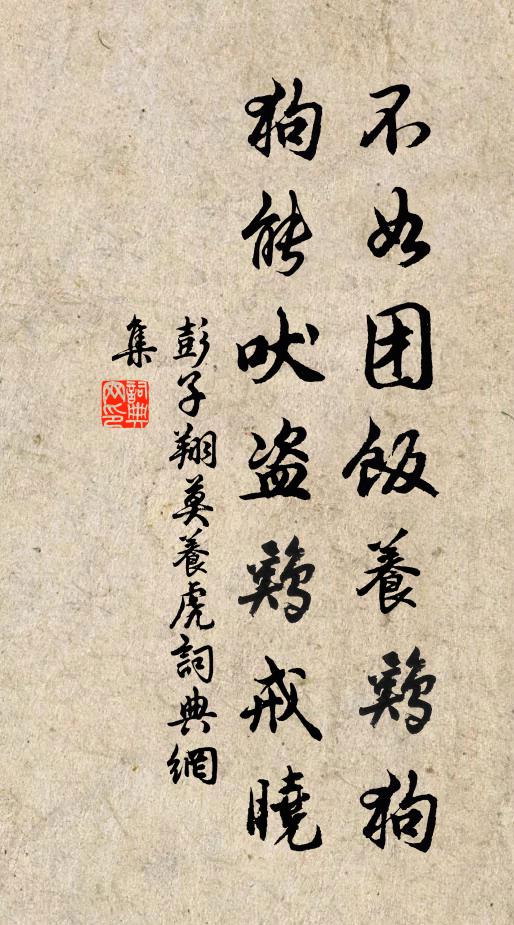 不如团飯養鷄狗
狗能吠盗鷄戒曉
彭子翔莫養虎詞典網
集
詞典
网印